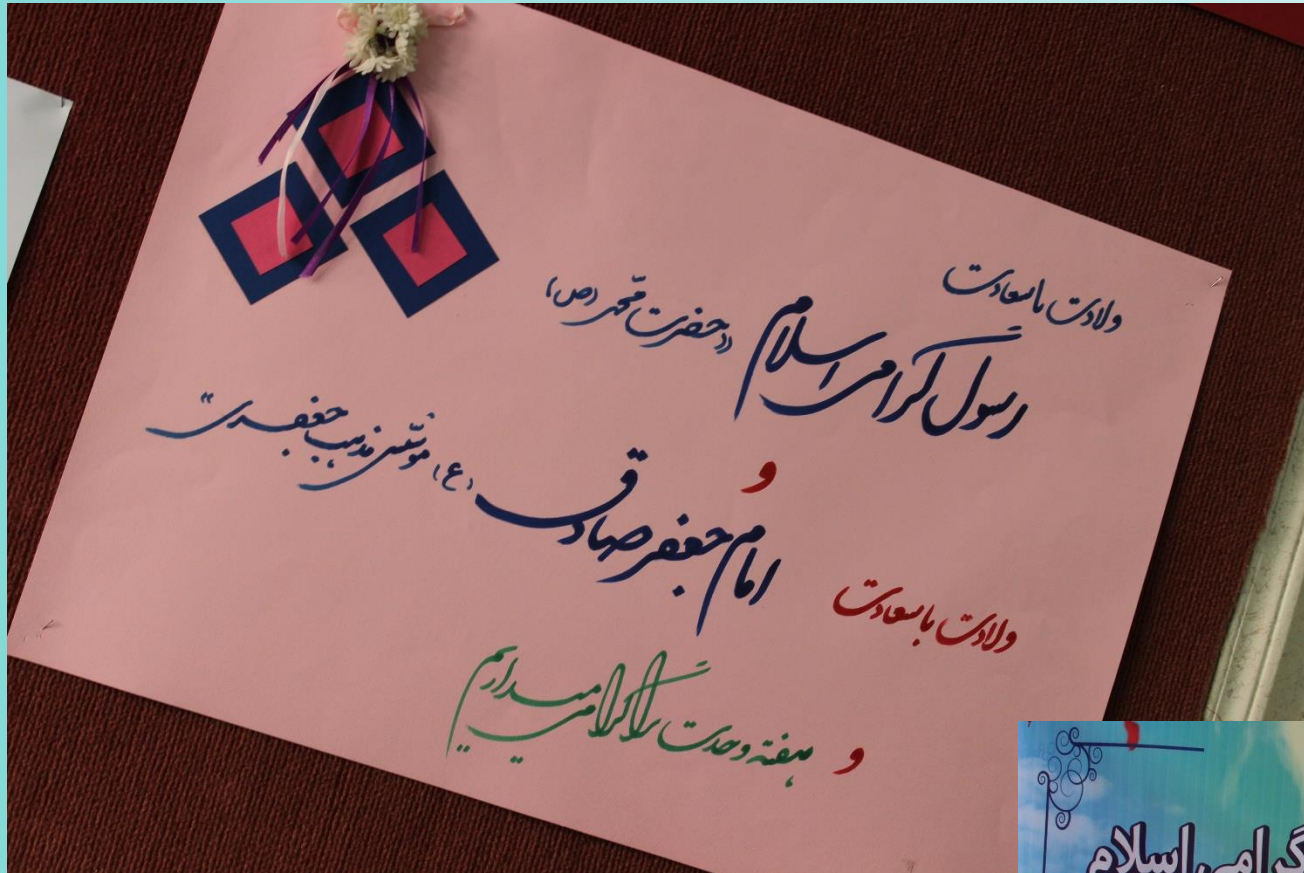 ولادت باسعادت
رسول گرامی اسلام «حضرت محمّد (ص)»
و
ولادت باسعادت امام جعفر صادق (ع) مؤسّس مذهب جعفری"
و هفته وحدت را گرامی میداریم
گرامی اسلام